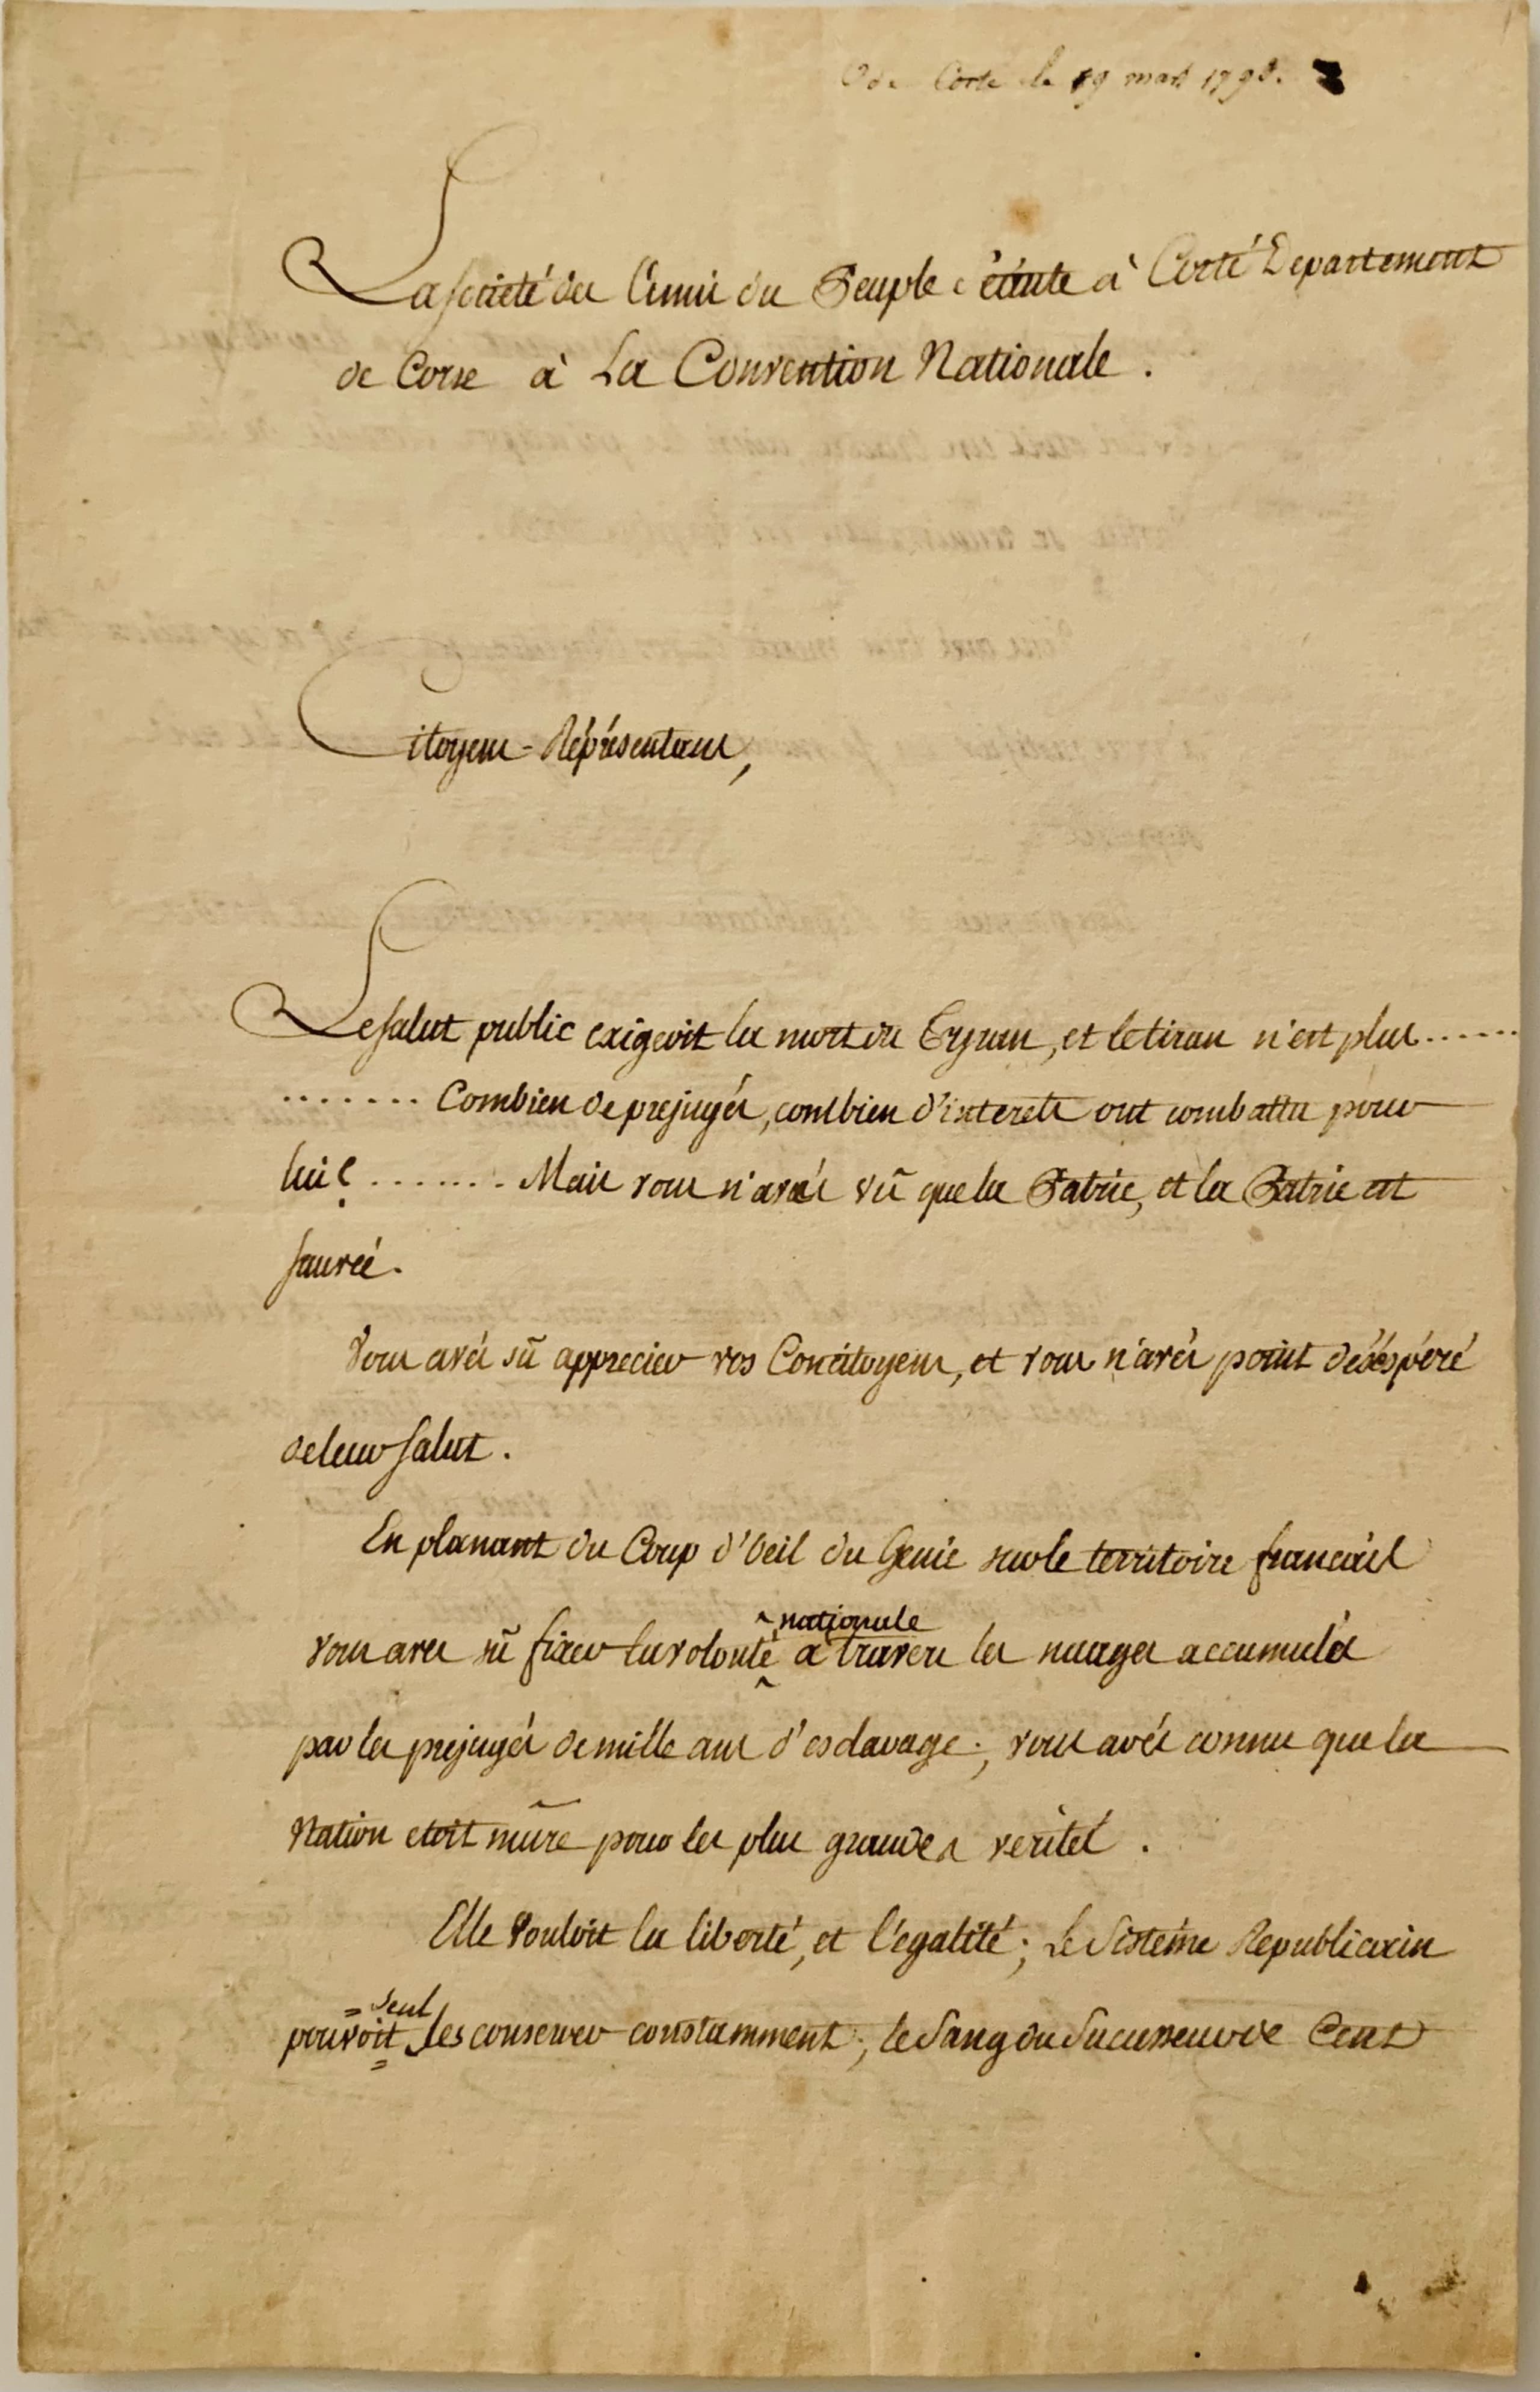 Corte le 19 mars 1793.
La societé des Amis du Peuple séante à Corté Departement
de Corse à La Convention Nationale.
Citoyens-Réprésentans,
Le salut public exigeoit la mort du Tyran, et le tiran n'est plus ......
....... Combien de prejugés, combien d'interets ont combattu pour
lui? ....... Mais vous n'avés vû que la Patrie, et la Patrie est
sauvée.
Vous avés sû apprecier vos Concitoyens, et vous n'avés point désespéré
de leur salut.
En planant du Coup d'Oeil du Genie sur le territoire francais
nationale
vous aves sû fixer la volonté à travers les nuages accumulés
par les prejugés de mille ans d'esclavage; vous avés connu que la
Nation etoit mûre pour les plus grandes verités.
Elle vouloit la liberté, et l'égalité; Le Sistéme Republicain
=seul
pouvoit les conserver constamment; le Sang du Sucesseur de Cent